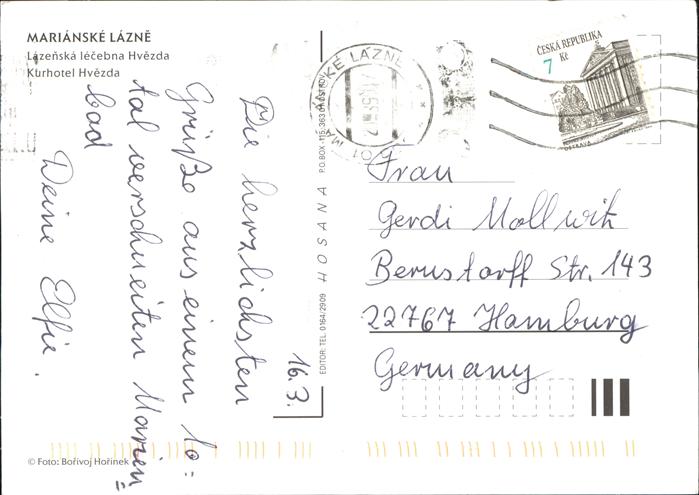 MARIÁNSKÉ LÁZNĚ
Lázeňská léčebna Hvězda
Kurhotel Hvězda
16.3.
Die herzlichsten
Grüße aus einem to=
tal verschneiten Marien=
bad
Deine Elfie.
© Foto: Bořivoj Hořínek
EDITOR: TEL. 0164/2909 HOSANA P.O.BOX 15, 363 01 OSTROV
KÉ LÁZNĚ
ČESKÁ REPUBLIKA
7 Kč
OSTRAVA
Frau
Gerdi Mollwik
Bernstorff Str. 143
22767 Hamburg
Germany